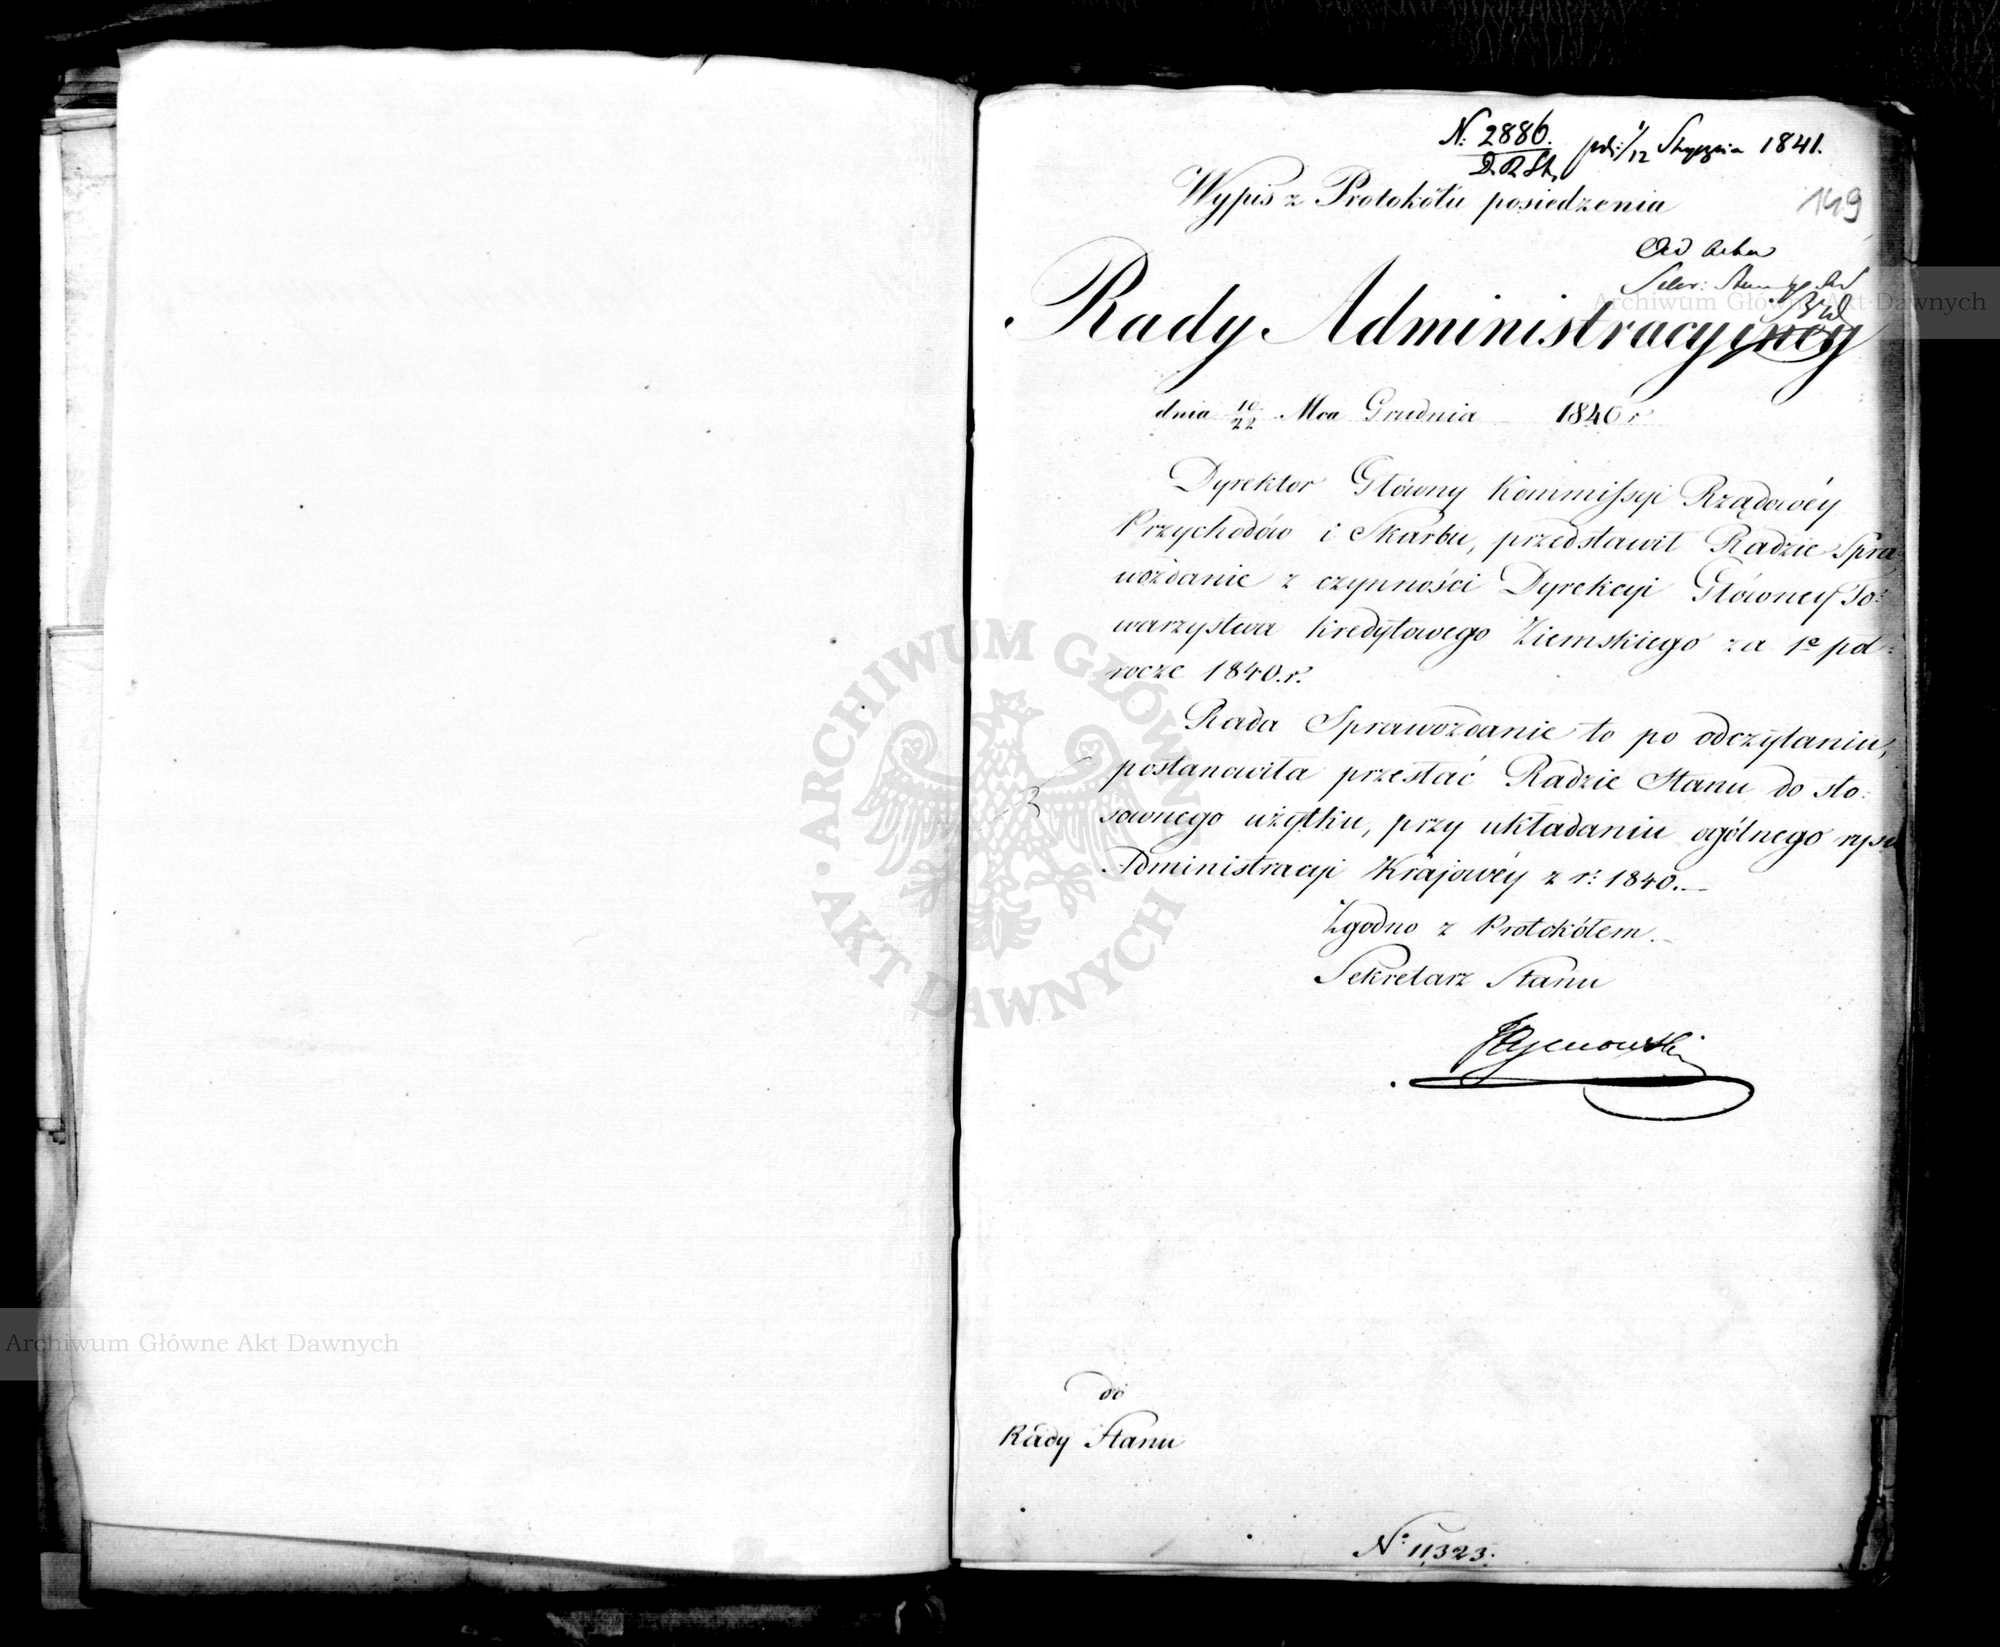 N. 2886.
D.R.St.
1/12 Stycznia 1841.
Wypis z Protokółu posiedzenia
149
Ad acta
Rady Administracyjney
dnia 10/22 Mca Grudnia 1840 r
Dyrektor Główny Kommissyi Rządowéy
Przychodów i Skarbu, przedstawił Radzie Spra
wozdanie z czynności Dyrekcyi Głównéy To:
warzystwa Kredytowego Ziemskiego za 1e pół:
rocze 1840.r.
Rada Sprawozdanie to po odczytaniu,
postanowiła przesłać Radzie Stanu do sto:
sownego użytku, przy układaniu ogólnego rysu
Administracyi Krajowéy z r: 1840.—
Zgodno z Protokółem.
Sekretarz Stanu
do
Rady Stanu
N: 11,323.
Archiwum Główne Akt Dawnych
Archiwum Główne Akt Dawnych
ARCHIWUM GŁÓWNE AKT DAWNYCH